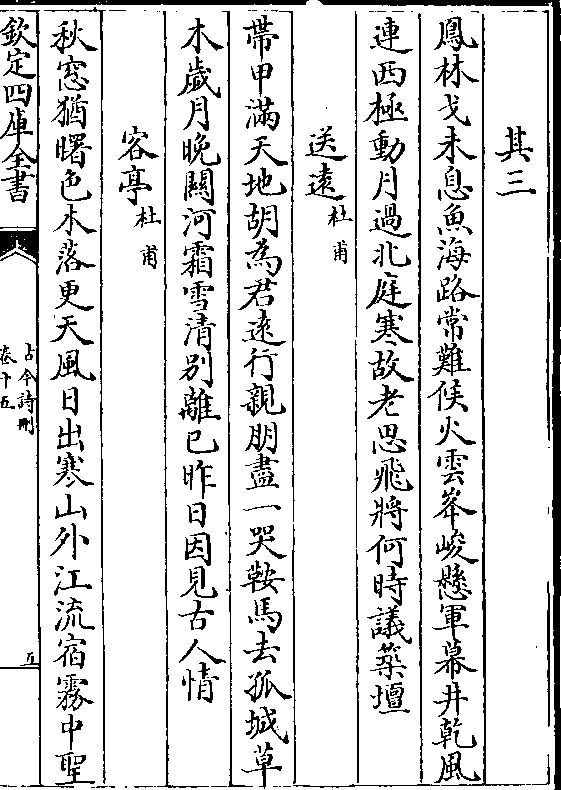 其三
鳳林戈未息魚海路常難候火雲峯峻懸軍幕井乾風
連西極動月過北庭寒故老思飛將何時議築壇
送遠杜甫
帶甲滿天地胡為君逺行親朋盡一哭鞍馬去孤城草
木歲月晚關河霜雪清别離已昨日因見古人情
客亭杜甫
秋窓猶曙色木落更天風日出寒山外江流宿霧中聖
欽定四庫全書
古今詩刪
卷十五
五